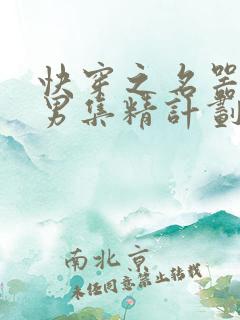 快穿之名器
男集精計劃
南北京
未任同意禁止转载